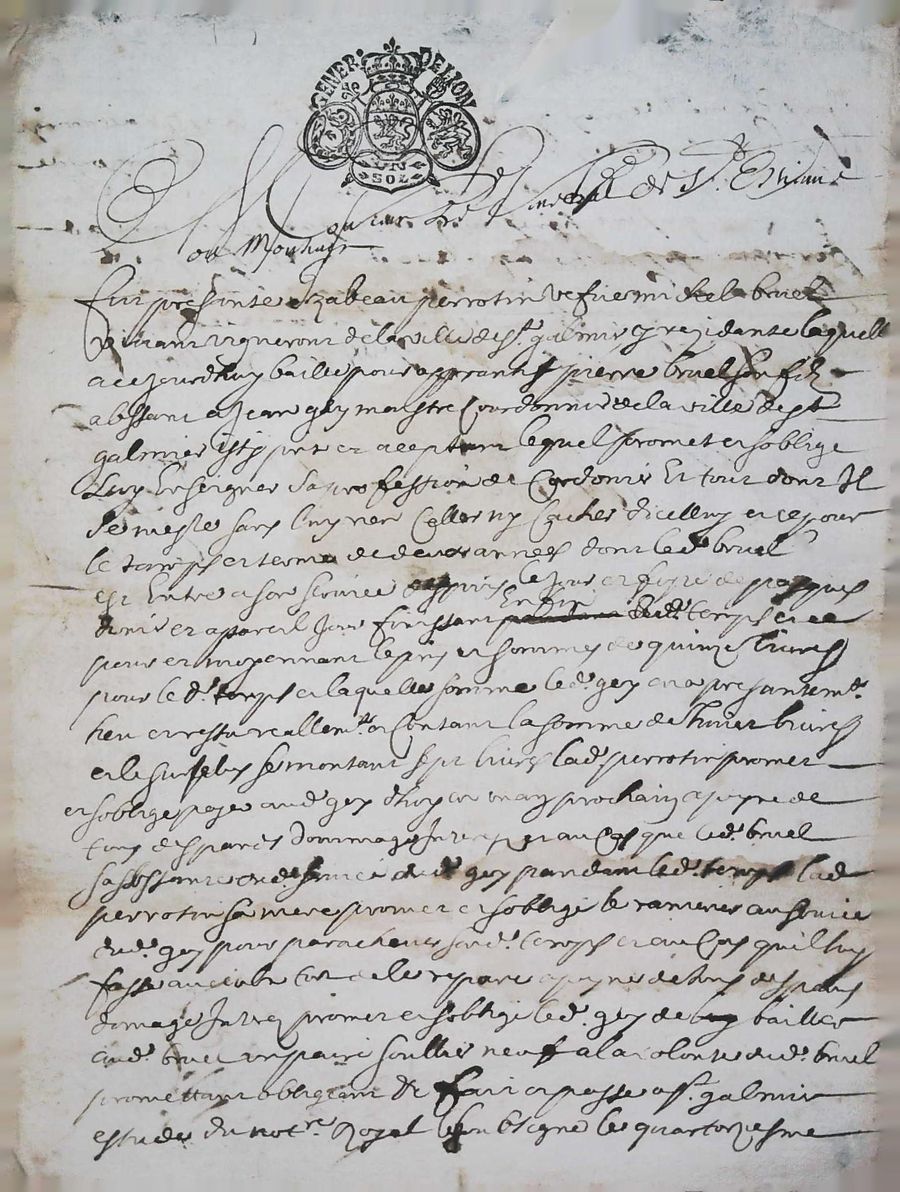 GENER. DE LION
UN
SOL
de St. Estiene
ou Monhaut
Fut presente yzabeau perrotin vefve michel bruel
vivant vigneron de la ville de st. galmier y rezidante laquelle
a cejourdhuy baille pour apprantif pierre bruel son filz
absant a Jean gey maistre Courdonnier de la ville de st
galmier isy pnt et aceptant lequel promet et soblige
Luy Enseigner sa proffession de Cordonier Et tout dont Il
se mesle sans luy rien Celler ny Cacher dicelluy et ce pour
le tamps et terme de deux annees dont led. bruel
est Entre a son service despuis le jour et feste de pasques
dernier et a pareil Jour finissant led. temps et ce
pour et moyennant le pris et somme de quinze livres
pour led. temps et laquelle somme led. gey en a presantemt.
heu et restu reallemt. et Contant la somme de huict livres
et le surplus se montant sept livres lad. perrotin promet
et soblige paye aud. gey dhuy en un an prochain a peyne de
tous despans dommage Intres et au Cas que led. bruel
sabstante du service dud. gey pandant led. temps lad.
perrotin sa mere promet et soblige le ramener au service
dud. gey pour parachever sond. temps et au Cas quil luy
fasse aucun tort de le repare a peyne de tous despans
domage Intres promet et soblige led. gey de bailler
aud. bruel un paire soullier neuf a la volonte dud. bruel
promettant obligeant &c Fait et passe a st. galmier
estude du notre. Royal soubsigne le quatorziesme